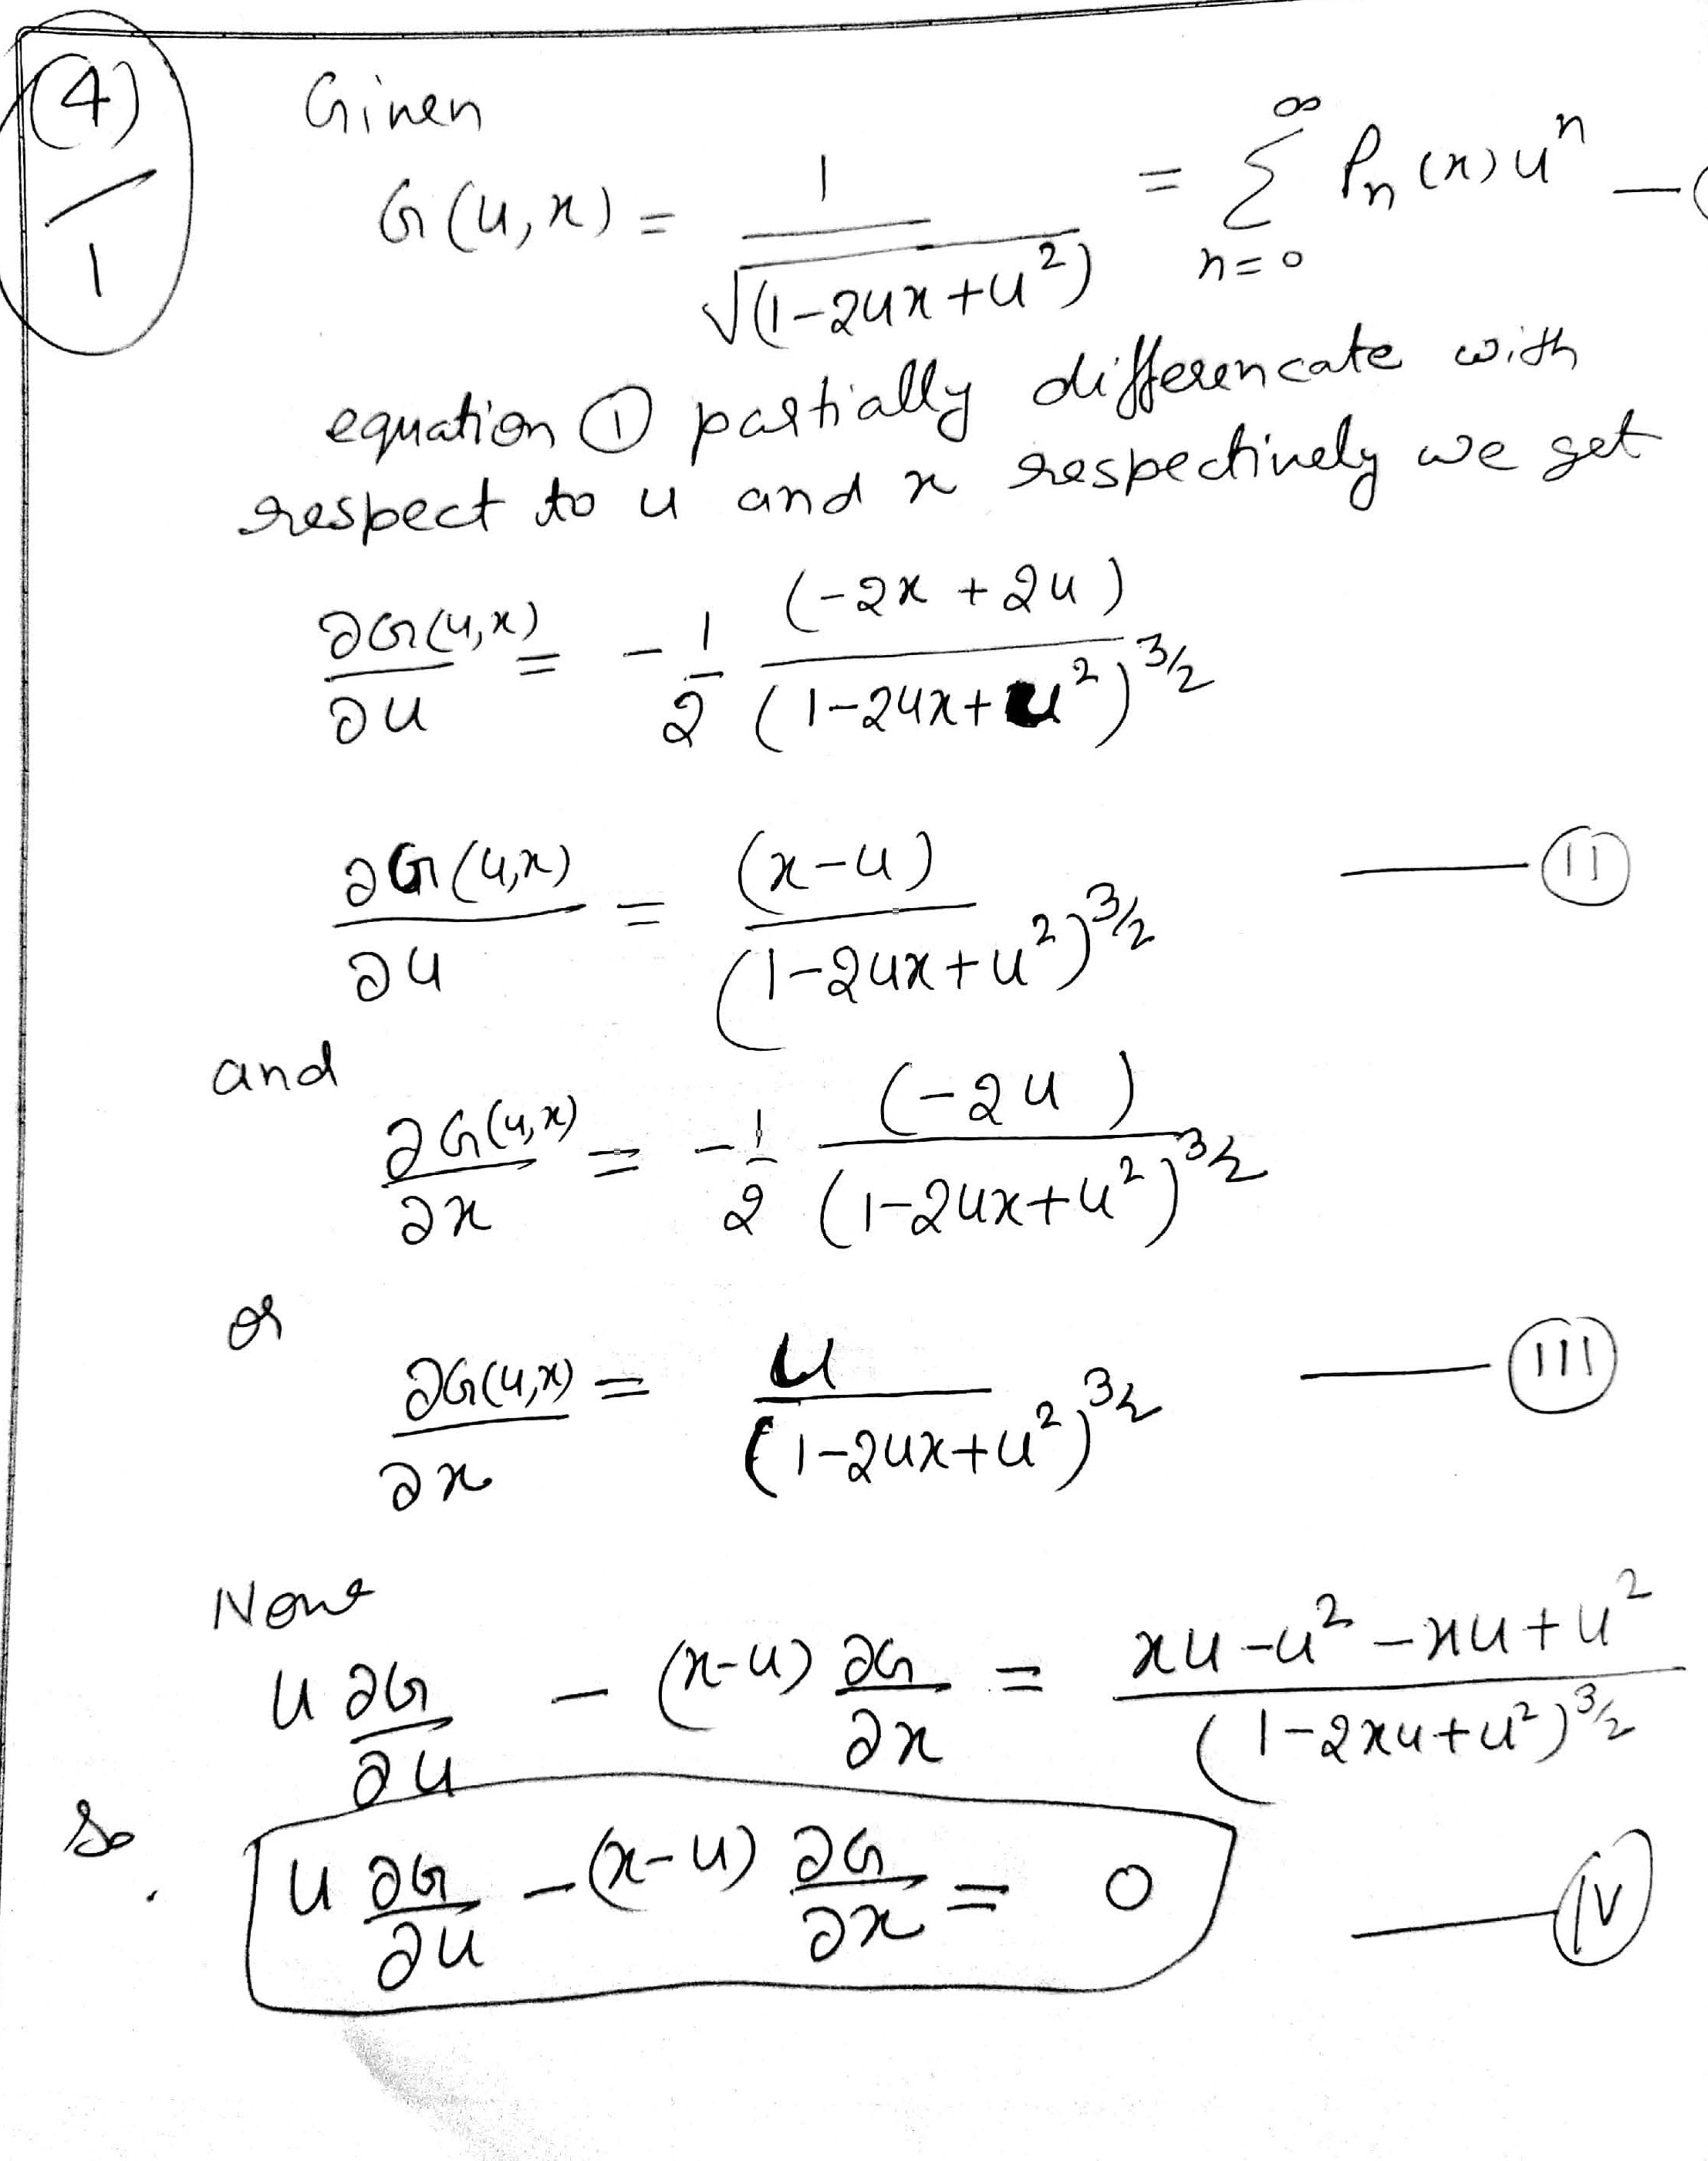 (4)
1
Given
G(u,x) = 1 / √(1-2ux+u²) = ∞ Σ n=0 Pn(x)uⁿ —
equation ① partially differencate with
respect to u and x respectively we get
∂G(u,x)/∂u = -1/2 (-2x+2u) / (1-2ux+u²)^3/2
∂G(u,x)/∂u = (x-u) / (1-2ux+u²)^3/2 — (II)
and
∂G(u,x)/∂x = -1/2 (-2u) / (1-2ux+u²)^3/2
or
∂G(u,x)/∂x = u / (1-2ux+u²)^3/2 — (III)
u ∂G/∂u - (x-u) ∂G/∂x = xu-u²-xu+u² / (1-2xu+u²)^3/2
So
u ∂G/∂u - (x-u) ∂G/∂x = 0 — (IV)